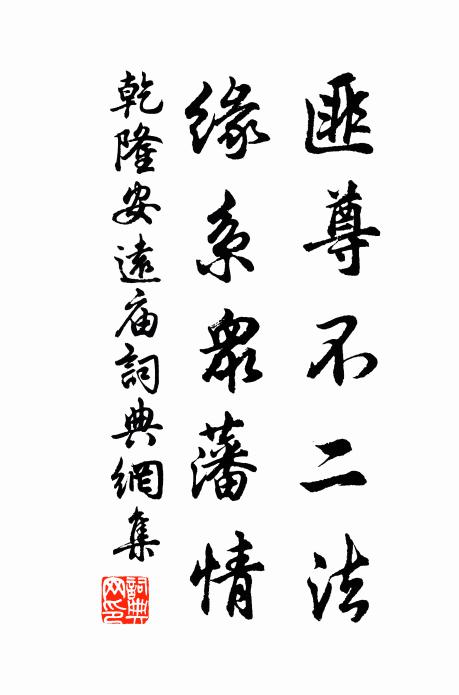 匪尊不二法
緣系衆藩情
乾隆安遠庙詞典網集
詞典网印